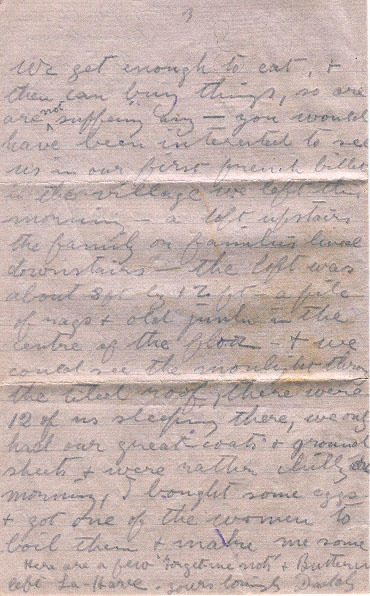 3
We get enough to eat, +
then can buy things, so are
are not suffering any – you would
have been interested to see
us in our first french billet
in the village we left this
morning – a loft upstairs
the family or families lived
downstairs – the loft was
about 8ft by 12 ft – a pile
of rags + old junk in the
centre of the floor – + we
could see the moonlight thro
the tiled roof, there were
12 of us sleeping there, we only
had our great coats + ground
sheets + were rather chilly
morning, I bought some eggs
+ got one of the women to
boil them + make me some
Here are a few "Forget me nots" +
left La-Havre – yours lovingly